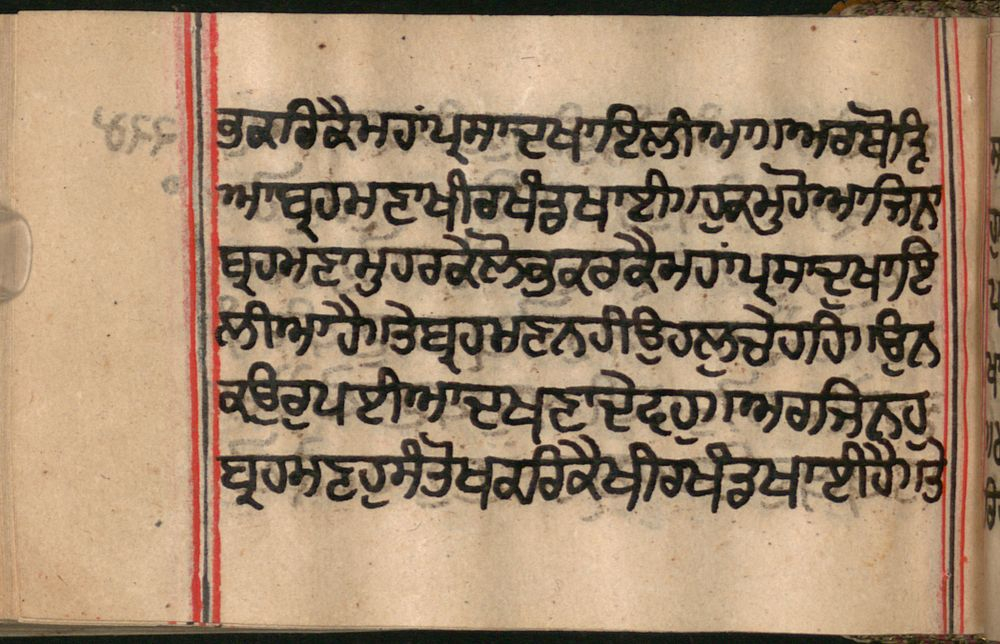 ਭੁਕਰਿਕੈਮਹਾਂਪ੍ਰਸਾਦਖਾਇਲੀਆ॥ਅਰਥੋੜਿ
ਆਬ੍ਰਹਮਣਾਖੀਰਖੰਡਖਾਈ॥ਹੁਕਮੁਹੋਆਜਿਨ
ਬ੍ਰਹਮਣਾਮੁਹਰਕੇਲੋਭੁਕਰਕੈਮਹਾਂਪ੍ਰਸਾਦੁਖਾਇ
ਲੀਆਹੈ॥ਤੇਬ੍ਰਹਮਣਨਹੀਉਹਲੁਚੇਹਹਿ॥ਉਨ
ਕਉਰੁਪਈਆਦਖਣਾਦੇਵਹੁ॥ਅਰਜਿਨਹੁ
ਬ੍ਰਹਮਣਹੁਸੰਤੋਖਕਰਿਕੈਖੀਰਖੰਡਖਾਈਹੈ॥ਤੇ